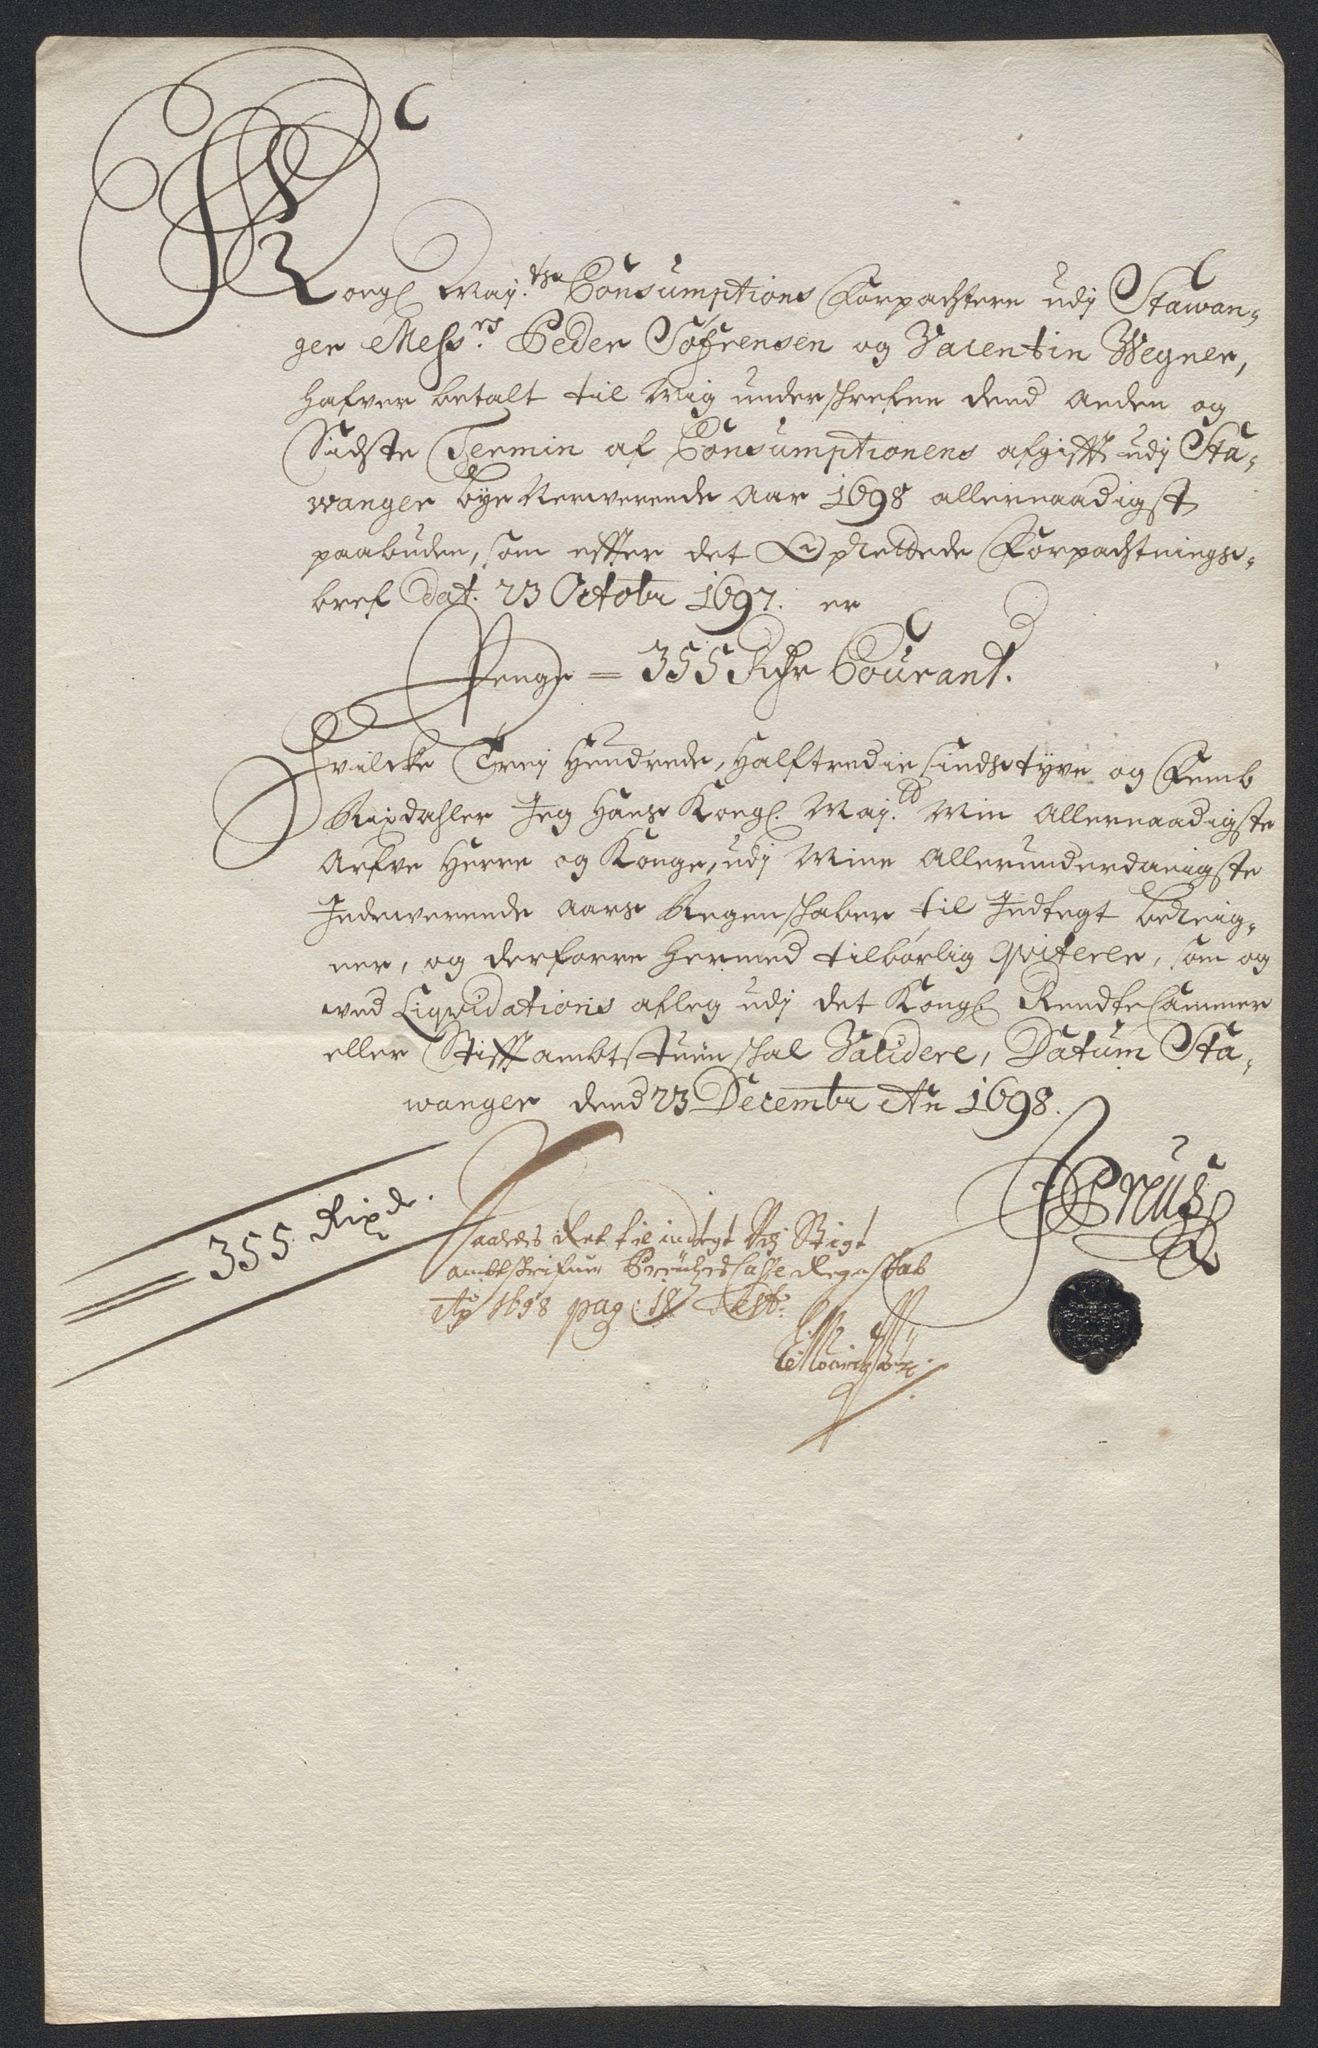 Kongl May.ths Consumptions Forpachtere udj Stawan-
ger Messrs Peder Söfrensen og Valentin Wegner,
hafver betalt til Mig underschrefne dend Anden og
Sidste Termin af Consumptionens afgifft udj Sta-
wanger bye Nerwerende Aar 1698 allernaadigst
paabuden, som effter det Oprettede Forpachtnings-
bref Dat. 23 Octobr 1697. er
Penge = 355 Rdr Courant.
Hvilcke Trej Hundrede, Halftredie Sindstyve og Femb
Rixdahler Jeg Hans Kongl. May.td Min Allernaadigste
Arfve Herre og Konge, udj Mine Allerunderdanigste
Indewerende Aars Regenschaber til Indtegt bereig-
ner, og derforre hermed tilbørlig Qviterer, som og
ved Liqvidations afleg udj det Kongl Rendte Cammer
eller Stifftambtstuen schal Validere, Datum Sta-
wanger dend 23 Decembr An 1698.
355 Rixdr.
JPreus
det til indtegt Udj Stigt
ambtschrifuer Casse Regnschab
Ao 1698 pag: 18 Test: